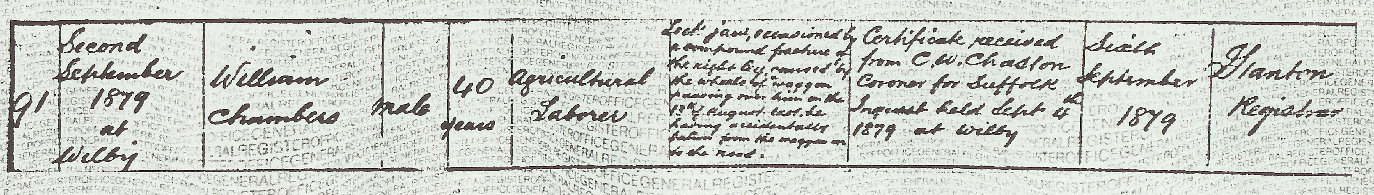 91
Second
September
1879
at
Wilby
William
Chambers
male
40
years
Agricultural
Laborer
Lock jaw, occasioned by
a compound fracture of
the right leg, caused by
the wheels of waggon
passing over him on the
August last, he
having accidentally
fallen from the waggon on
to the road.
Certificate received
from C. W. Chaston
Coroner for Suffolk
Inquest held Sept 4th
1879 at Wilby
Sixth
September
1879
Stanton
Registrar